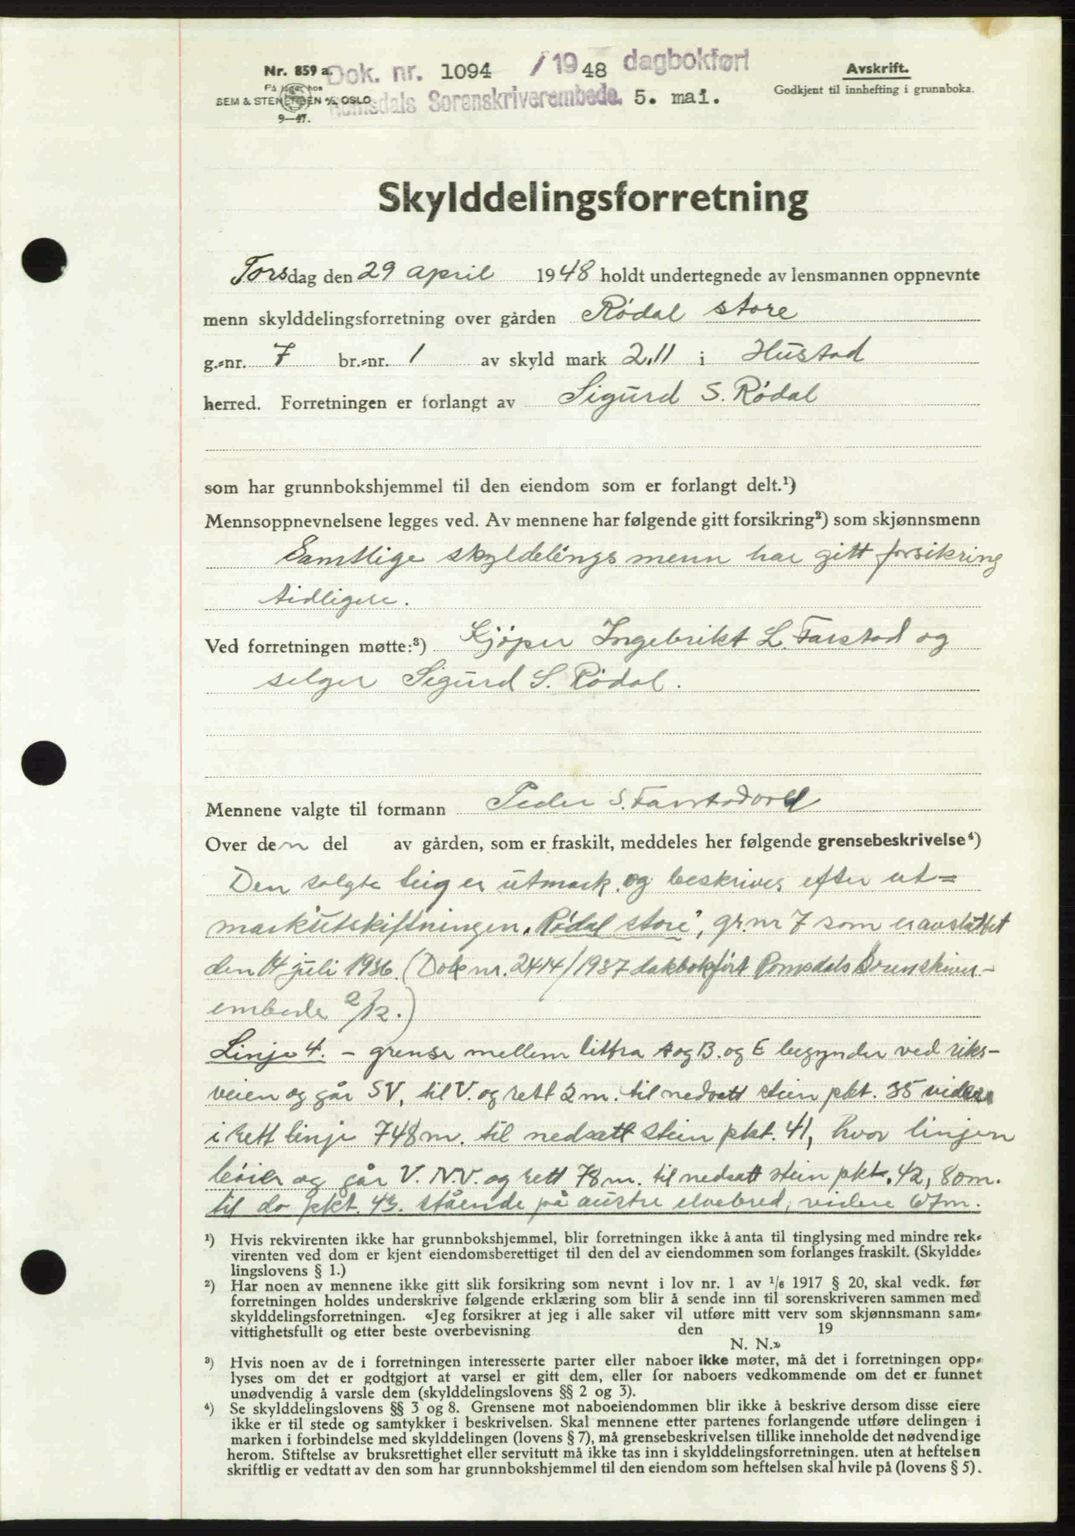 Nr. 859 a.
På lager hos
SEM & STENERSEN A/S, OSLO
9—47.
Dok. nr. 1094 / 1948 dagbokført
Romsdals Sorenskriverembede. 5. mai.
Avskrift.
Godkjent til innhefting i grunnboka.
Skylddelingsforretning
Torsdag den 29 april 1948 holdt undertegnede av lensmannen oppnevnte
menn skylddelingsforretning over gården Rødal store
g.-nr. 7 br.-nr. 1 av skyld mark 2,11 i Hustad
herred. Forretningen er forlangt av Sigurd S. Rødal
som har grunnbokshjemmel til den eiendom som er forlangt delt.¹)
Mennsoppnevnelsene legges ved. Av mennene har følgende gitt forsikring²) som skjønnsmenn
Samtlige skyldelings menn har gitt forsikring
tidligere.
Ved forretningen møtte:³) Kjøper Ingebrikt L. Farstad og
selger Sigurd S. Rødal.
Mennene valgte til formann Peder S. Farstadvold
Over den del av gården, som er fraskilt, meddeles her følgende grensebeskrivelse⁴)
Den solgte teig er utmark og beskrives efter ut=
markutskiftningen "Rødal store", gr. nr 7 som er avsluttet
den 14 juli 1936. (Dok nr. 2414/1937 dakbokført Romsdals Sorenskriver-
embede 2/12.)
Linje 4. - grense mellem litra A og B. og E begynder ved riks-
veien og går SV, til V. og rett 2 m. til nedsatt stein pkt. 35 videre
i rett linje 748 m. til nedsatt stein pkt. 41, hvor linjen
bøier og går V. N.V. og rett 78 m. til nedsatt stein pkt. 42, 80 m.
til do pkt. 43. stående på austre elvebred, videre 67 m.
¹) Hvis rekvirenten ikke har grunnbokshjemmel, blir forretningen ikke å anta til tinglysing med mindre rek-
virenten ved dom er kjent eiendomsberettiget til den del av eiendommen som forlanges fraskilt. (Skyldde-
lingslovens § 1.)
²) Har noen av mennene ikke gitt slik forsikring som nevnt i lov nr. 1 av ¹/₆ 1917 § 20, skal vedk. før
forretningen holdes underskrive følgende erklæring som blir å sende inn til sorenskriveren sammen med
skylddelingsforretningen. «Jeg forsikrer at jeg i alle saker vil utføre mitt verv som skjønnsmann sam-
vittighetsfullt og etter beste overbevisning den 19
N. N.»
³) Hvis noen av de i forretningen interesserte parter eller naboer ikke møter, må det i forretningen opp-
lyses om det er godtgjort at varsel er gitt dem, eller for naboers vedkommende om det er funnet
unødvendig å varsle dem (skylddelingslovens §§ 2 og 3).
⁴) Se skylddelingslovens §§ 3 og 8. Grensene mot naboeiendommen blir ikke å beskrive dersom disse eiere
ikke er til stede og samtykker i beskrivelsen. Skal mennene etter partenes forlangende utføre delingen i
marken i forbindelse med skylddelingen (lovens § 7), må grensebeskrivelsen tillike inneholde det nødvendige
herom. Stiftelse av bruksrettighet eller servitutt må ikke tas inn i skylddelingsforretningen. uten at heftelsen
skriftlig er vedtatt av den som har grunnbokshjemmel til den eiendom som heftelsen skal hvile på (lovens § 5).